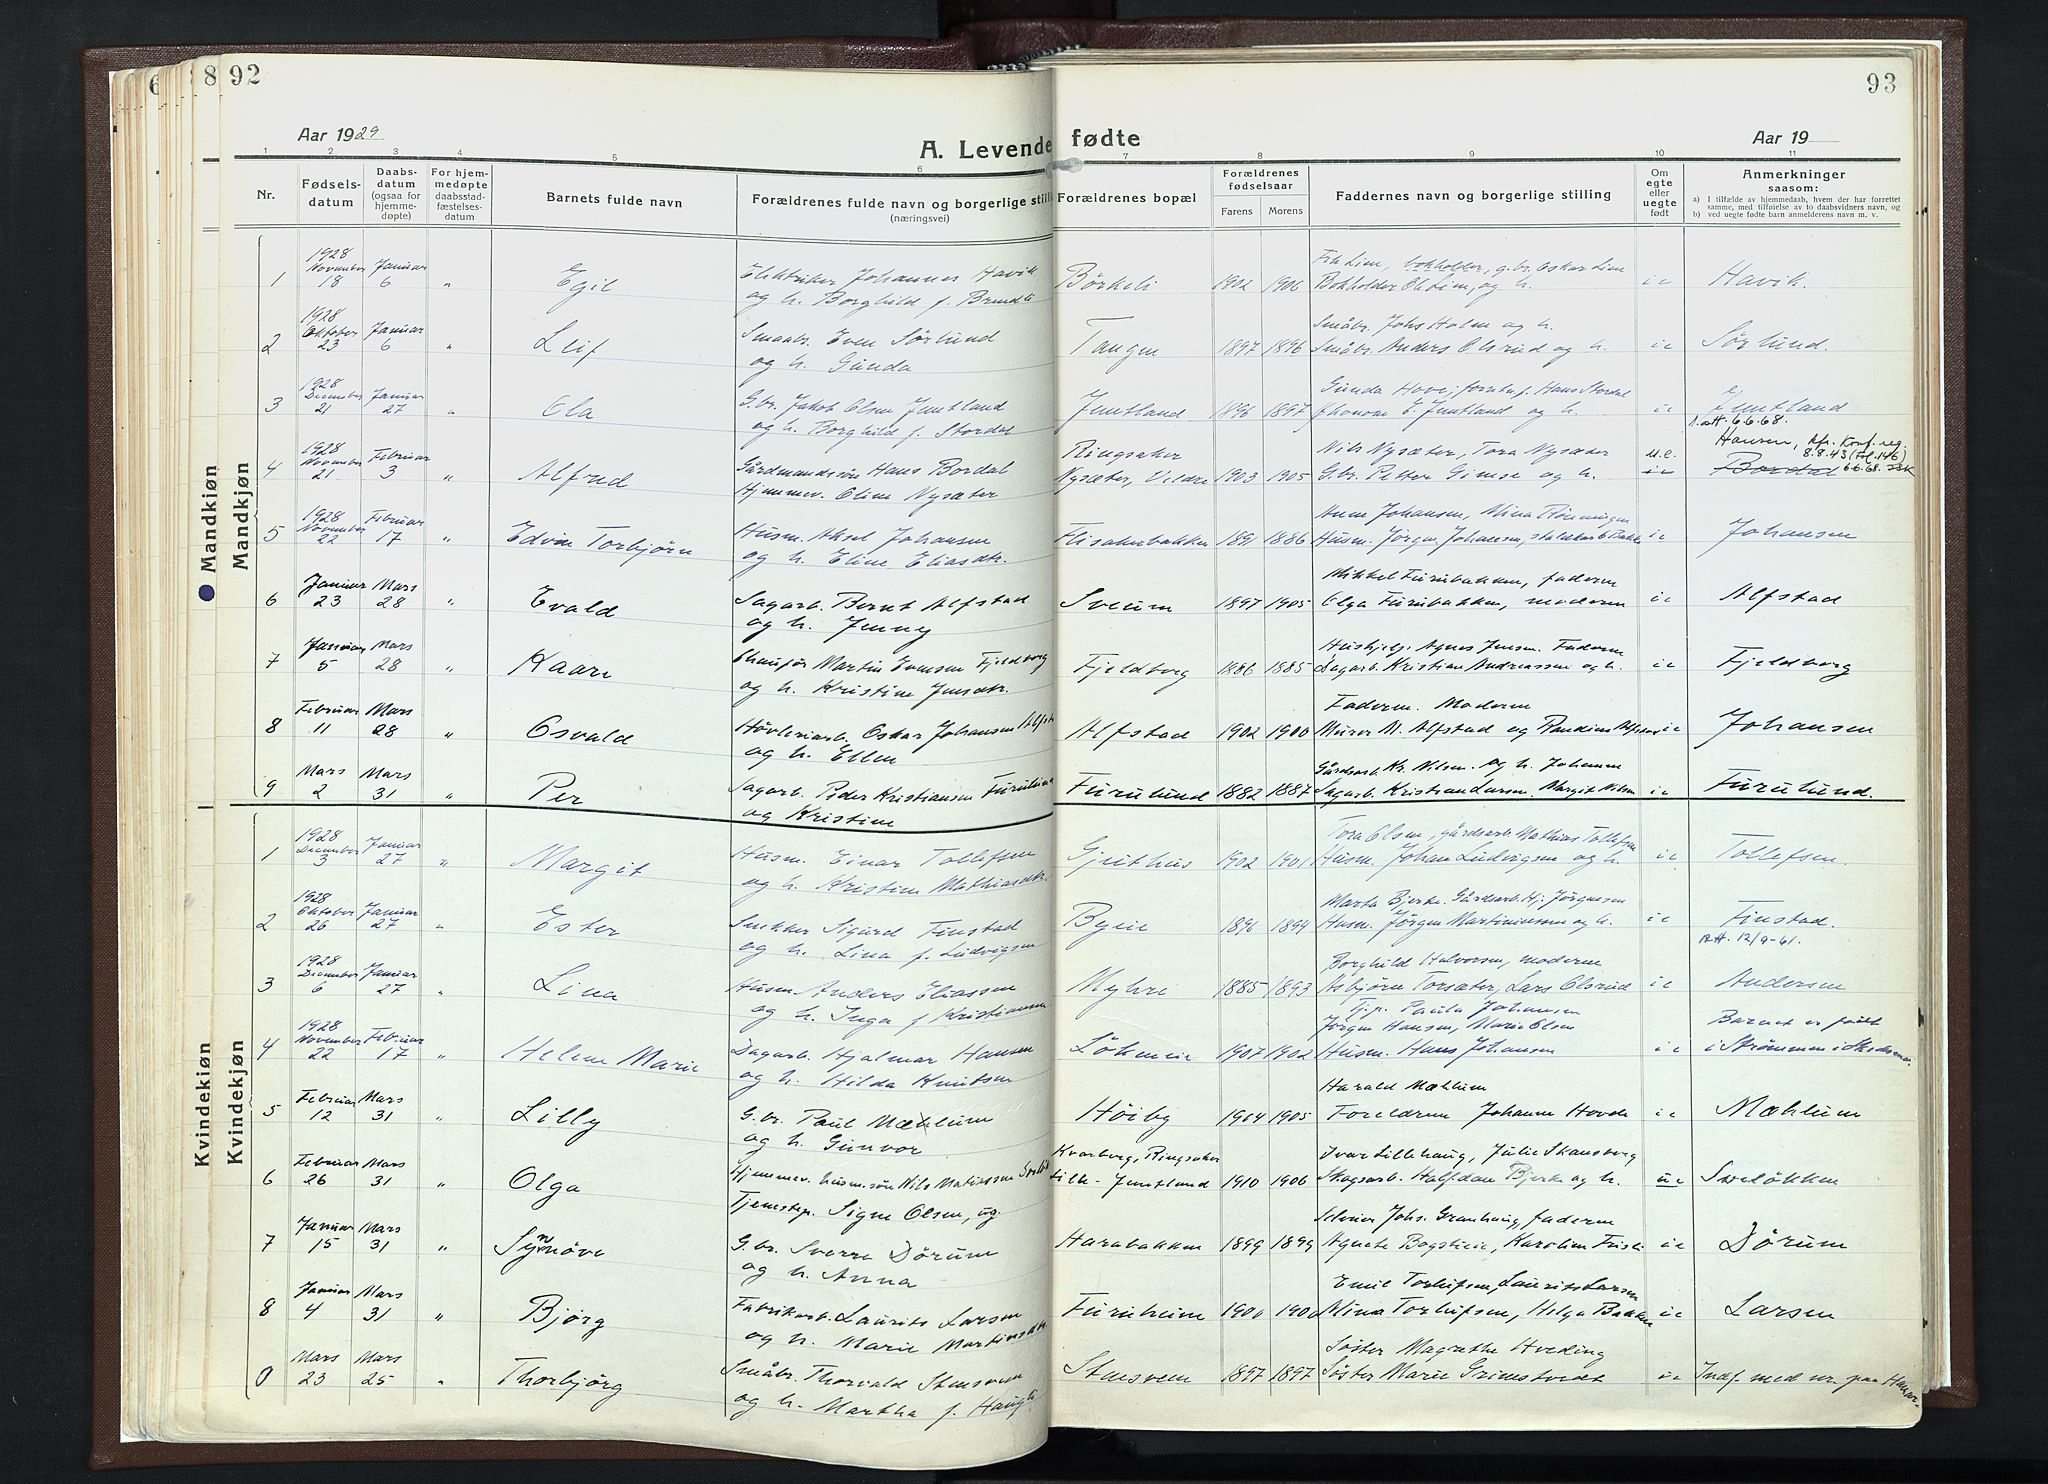 92
93
Aar 1929
A. Levende fødte
Aar 19
1 2 3 4 5 6 7 8 9 10 11
Nr.
Fødsels-
datum
Daabs-
datum
(ogsaa for
hjemme-
døpte)
For hjem-
medøpte
daabsstad-
fæstelses-
datum
Barnets fulde navn
Forældrenes fulde navn og borgerlige still
(næringsvei)
Forældrenes bopæl
Forældrenes
fødselsaar
Farens Morens
Faddernes navn og borgerlige stilling
Om
egte
eller
uegte
født
Anmerkninger
saasom:
a) I tilfælde av hjemmedaab, hvem der har forrettet
samme, med tilføielse av to daabsvidners navn, og
b) ved uegte fødte barn anmelderens navn m. v.
Mandkjøn
Mandkjøn
1 1928 November 18 Januar 6 " Egil Elektriker Johannes Havik
og h. Borghild f. Børkeli 1902 1906 Bokholder Ole Lien, og h. i e Havik.
2 1928 Oktober 23 Januar 6 " Leif Smaabr. Even Sørlund
og h. Gunda Tangen 1897 1896 Småbr. Johs Holm og h.
Småbr. Anders Olsrud og h. i e Sørlund.
3 1928 December 21 Januar 27 " Ola G.br. Jakob Olsen Jemtland
og h. Borghild f. Stordal Jemtland 1896 1897 Gunda Hove, Hans Stordal
E. Jemtland og h. i e Jemtland
6.6.68.
4 1928 November 21 Februar 3 " Alfred Gårdmandssøn Hans Bordal
Hjemmev. Oline Nysæter Ringsaker
Nysæter, Veldre 1903 1905 Nils Nysæter, Tora Nysæter
G.br. Petter Gimse og h. u.e. i e Hansen, Kfr. Konf. reg.
8.8.43 (fol. 146)
Bordal 6.6.68.
5 1928 November 22 Februar 17 " Edvin Torbjørn Husm. Aksel Johansen
og h. Eline Eliasdtr. Flisakerbakken 1891 1886 Anne Johansen, Mina
Husm. Jørgen Johansen, i e Johansen
6 Januar 23 Mars 28 " Evald Sagarb. Bernt Alfstad
og h. Jenny Sveum 1897 1905 Mikkel Furubakken, faderen
Olga Furubakken, moderen i e Alfstad
7 Januar 5 Mars 28 " Kaare Chauffør Martin Evensen Fjeldborg
og h. Kristine Jensdtr. Fjeldborg 1886 1885 Hushjelp. Agnes Jensen. Faderen
Dagarb. Kristian Andreassen og h. i e Fjeldborg
8 Februar 11 Mars 28 " Osvald Høvleriarb. Oskar Johansen
og h. Ellen Alfstad 1902 1900 Faderen. Moderen
Murer M. Alfstad og Randine Alfstad i e Johansen
9 Mars 2 Mars 31 " Per Sagarb. Peder Kristiansen Furulund
og Kristine Furulund 1882 1887 Gårdsarb. Kr. Nilsen. og h. Johanne
Sagarb. Kristian Larsen. Margit Nilsen i e Furulund.
Kvindekjøn
Kvindekjøn
1 1928 December 3 Januar 27 " Margit Husm. Einar Tollefsen
og h. Kristine Mathiasdtr. Gjeithus 1902 1901 Tora Olsen, gårdsarb. Mathias Tollefsen
Husm. Johan Ludvigsen og h. i e Tollefsen.
2 1928 Oktober 26 Januar 27 " Ester Snekker Sigurd Finstad
og h. Lina f. Ludvigsen 1896 1894 Marta Bjerke. Gårdsarb. Hj. Jørgensen
Husm. Jørgen Martiniussen og h. i e Finstad.
12/9-61.
3 1928 December 6 Januar 27 " Lina Husm. Anders Eliassen
og h. Inga f. Kristiansen Myhre 1885 1893 Borghild Halvorsen, moderen
Asbjørn Torsæter, Lars Olsrud i e Andersen
4 1928 November 22 Februar 17 " Helene Marie Dagarb. Hjalmar Hansen
og h. Hilda Knutsen 1907 1902 Tj.p. Paula Johansen
Jørgen Hansen, Marie Olsen
Husm. Hans Johansen i e Barnet er født
i Strømmen i Skedsmo
5 Februar 12 Mars 31 " Lilly G.br. Paul Mæhlum
og h. Gunvor Høiby 1904 1905 Harald Mæhlum
Foreldrene Johanne Hovde i e Mæhlum
6 Februar 26 Mars 31 " Olga Hjemmev. husm.søn Nils Matiassen
Tjenestep. Signe Olsen, ug. Kvarberg, Ringsaker
Lille-Jemtland 1910 1906 Ivar Lillehaug, Julie Skansberg
Skogsarb. Halfdan Bjerke og h. u e Sveløkken
7 Januar 15 Mars 31 " Synnøve G.br. Sverre Dørum
og h. Anna Harabakken 1899 1899 Selveier Johs. Granhaug, faderen
Agnete Bogstieie, Karoline i e Dørum
8 Januar 4 Mars 31 " Bjørg Fabrikarb. Laurits Larsen
og h. Marie Martinsdtr. Furuheim 1900 1900 Emil Torleifsen, Laurits Larsen
Mina Torleifsen, Helga Bakken i e Larsen
0 Mars 23 Mars 25 " Thorbjørg Småbr. Thorvald Stensveen
og h. Martha f. Haugli Stensveen 1897 1897 Søster Magrethe Hveding
Søster Marie Grimstvedt i e Indf. med nr. paa Hamar.